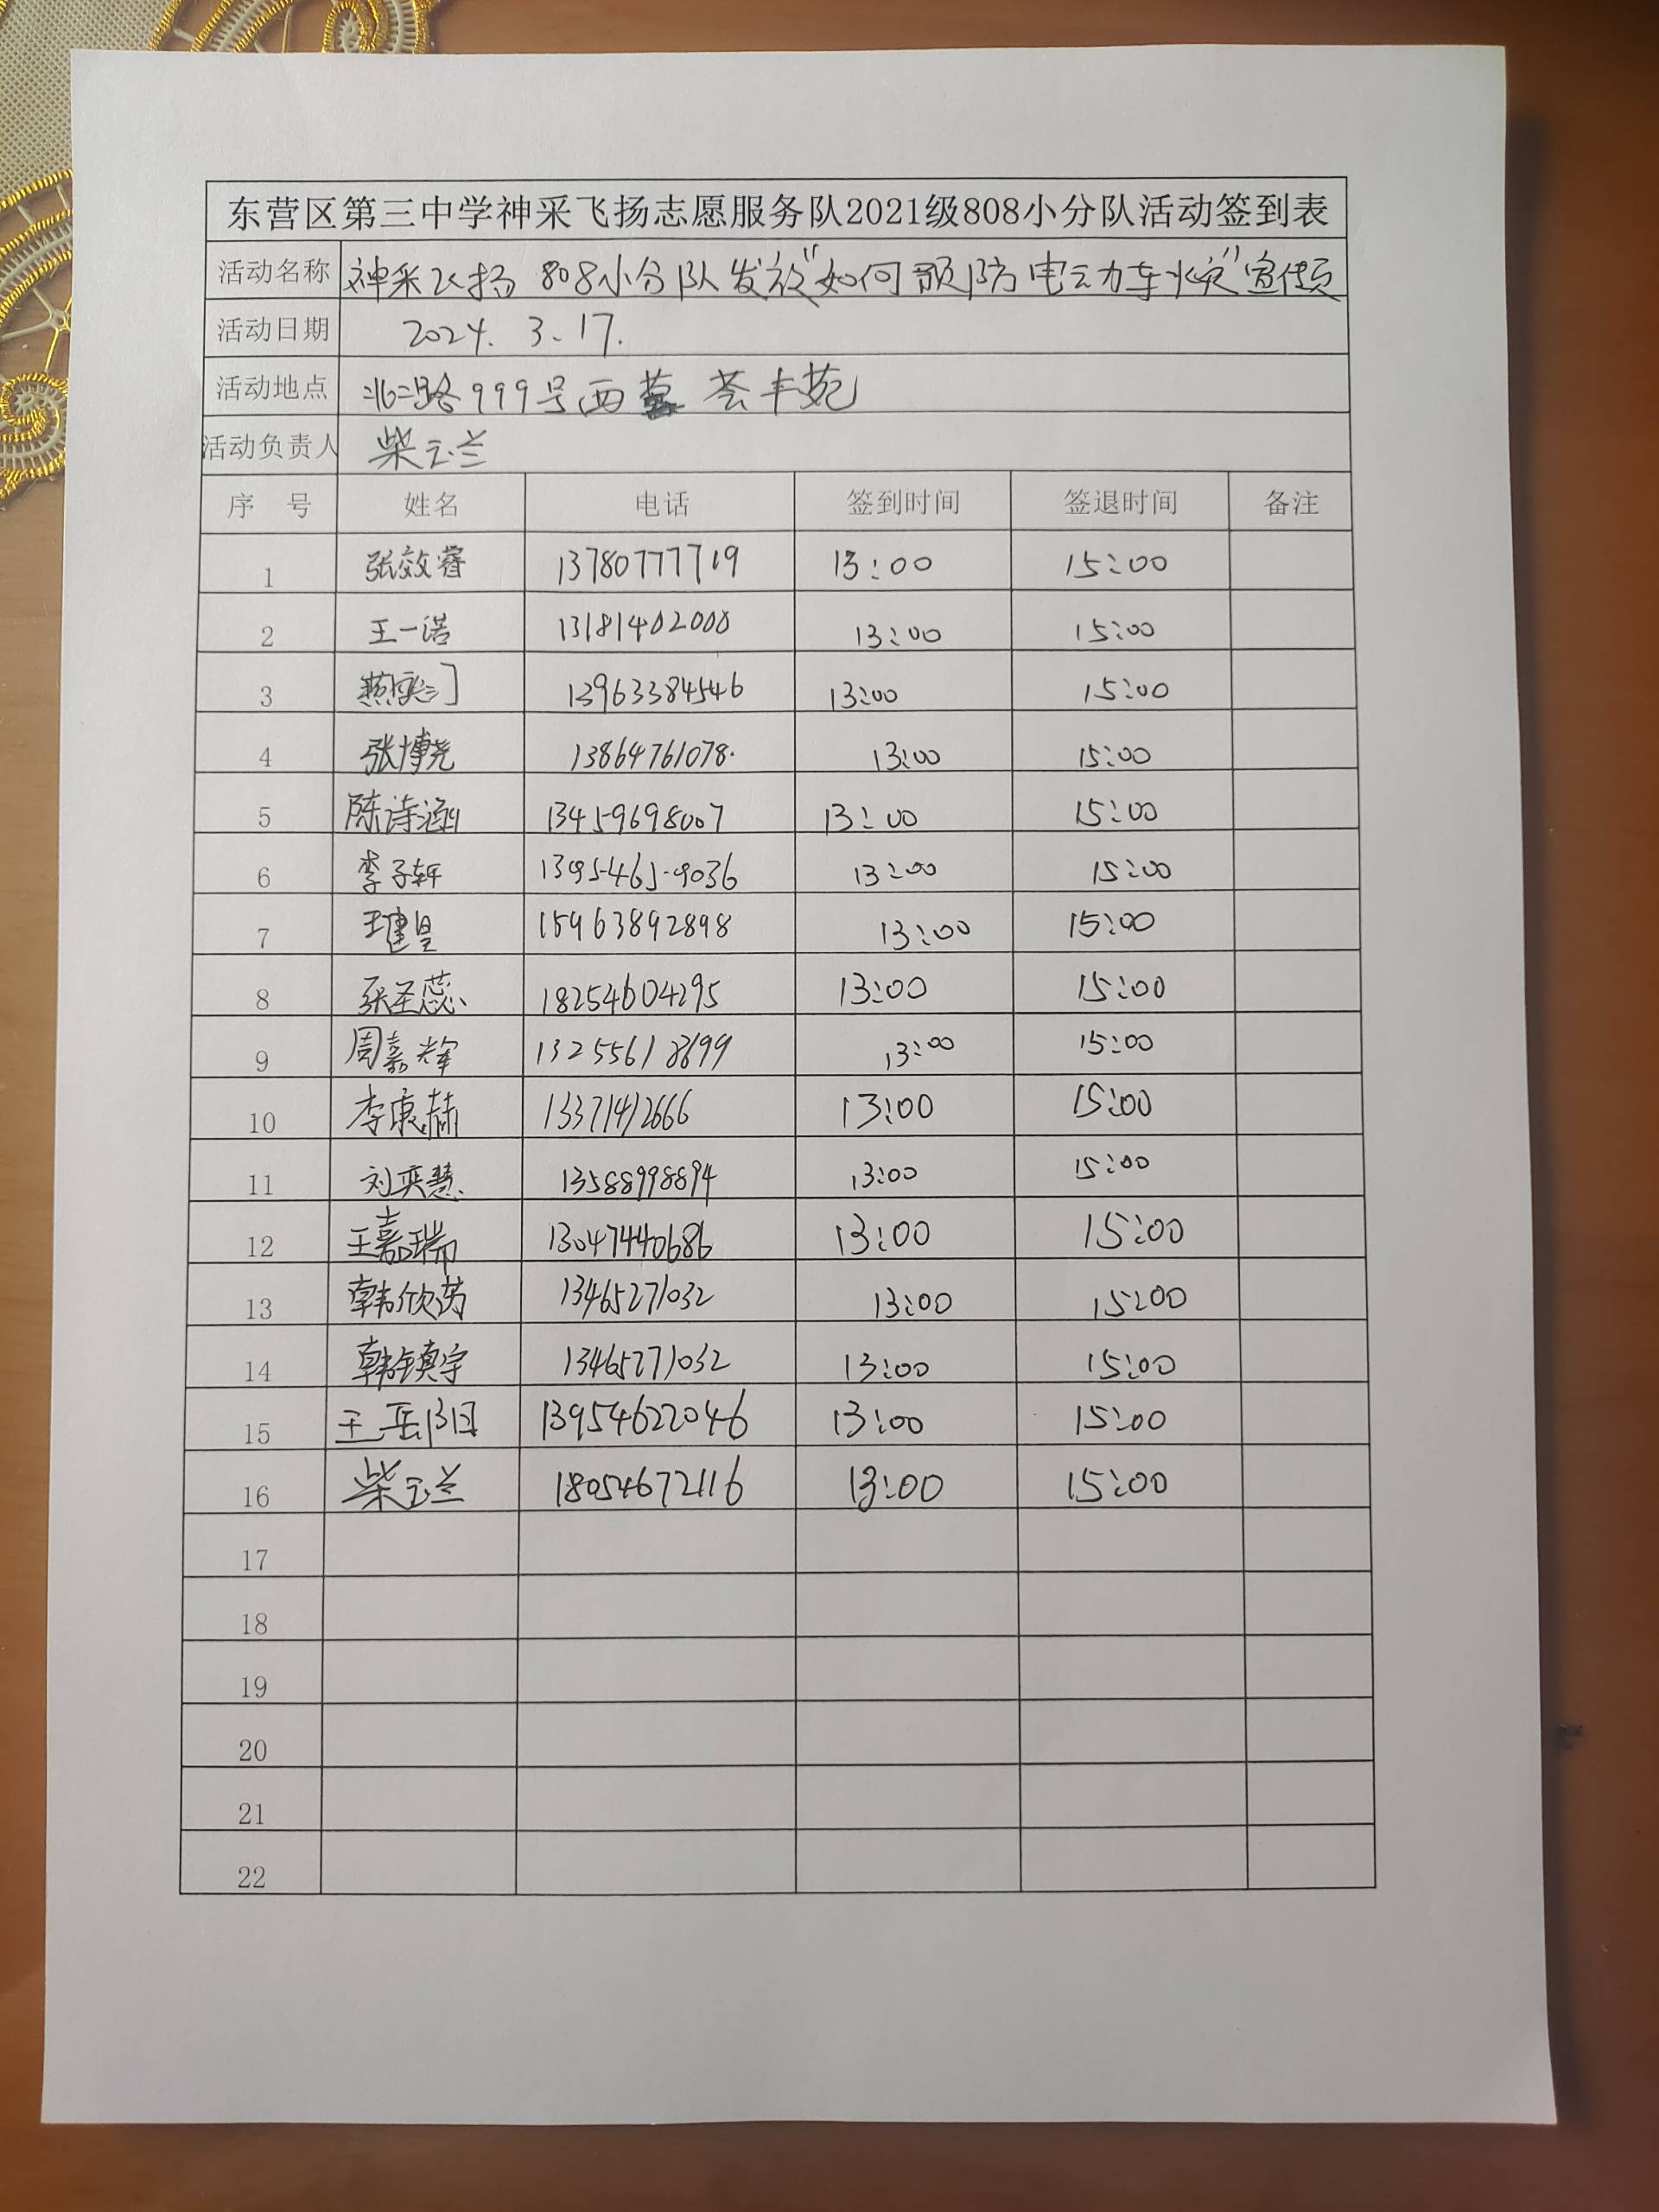 东营区第三中学神采飞扬志愿服务队2021级808小分队活动签到表
活动名称 神采飞扬 808小分队发放"如何预防电动车火灾"宣传页
活动日期 2024. 3.17.
活动地点 北二路999号西 荟丰苑
活动负责人 柴玉兰
序 号 姓名 电话 签到时间 签退时间 备注
1 张效睿 13780777719 13:00 15:00
2 王一浩 13181402008 13:00 15:00
3 13963384546 13:00 15:00
4 张博尧 13864761078. 13:00 15:00
5 陈诗涵 13459698007 13:00 15:00
6 李子轩 1395-465-9036 13:00 15:00
7 王建昊 15963892898 13:00 15:00
8 张圣蕊 18254604295 13:00 15:00
9 周嘉辉 13255618699 13:00 15:00
10 李康赫 13371412666 13:00 15:00
11 刘奕慧 13588998894 13:00 15:00
12 王嘉瑞 13047440686 13:00 15:00
13 韩欣芮 13465271032 13:00 15:00
14 韩镇宇 13465271032 13:00 15:00
15 王岳阳 13954622046 13:00 15:00
16 柴玉兰 18054672116 13:00 15:00
17
18
19
20
21
22